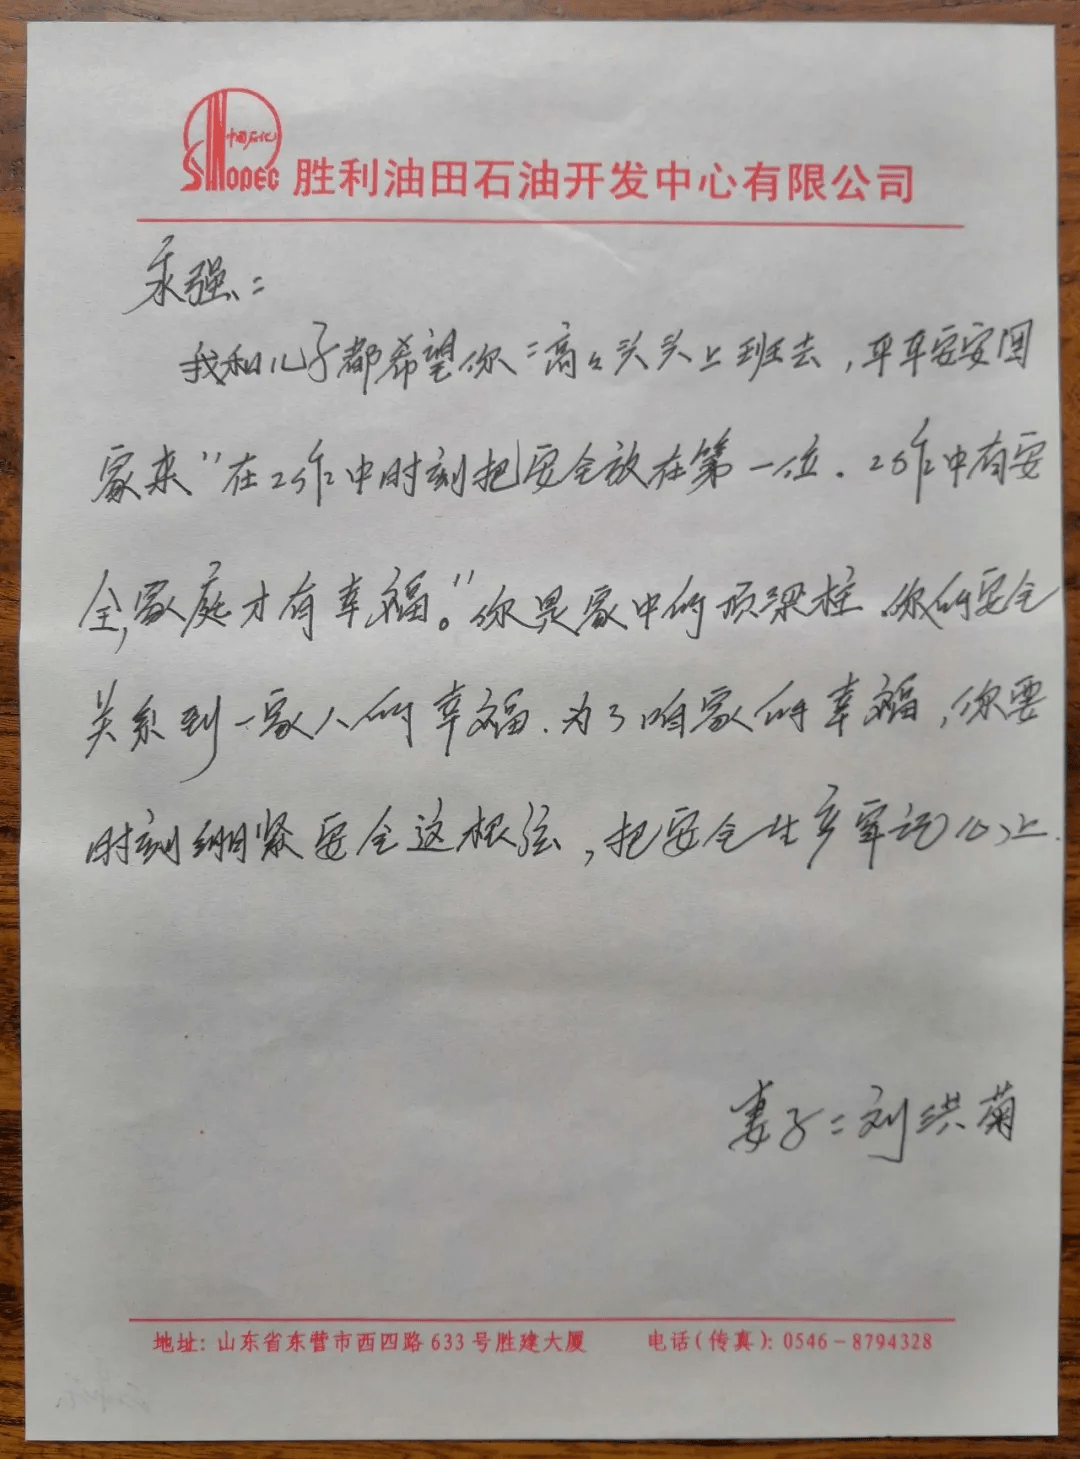 中国石化
SINOPEC 胜利油田石油开发中心有限公司
永强：
我和儿子都希望你：高々兴兴上班去，平平安安回
家来“在工作中时刻把安全放在第一位．工作中有安
全，家庭才有幸福。”你是家中的顶梁柱．你的安全
关系到一家人的幸福．为了咱家的幸福，你要
时刻绷紧安全这根弦，把安全生产牢记心上．
妻子：刘洪菊
地址：山东省东营市西四路 633 号胜建大厦 电话（传真）：0546－8794328